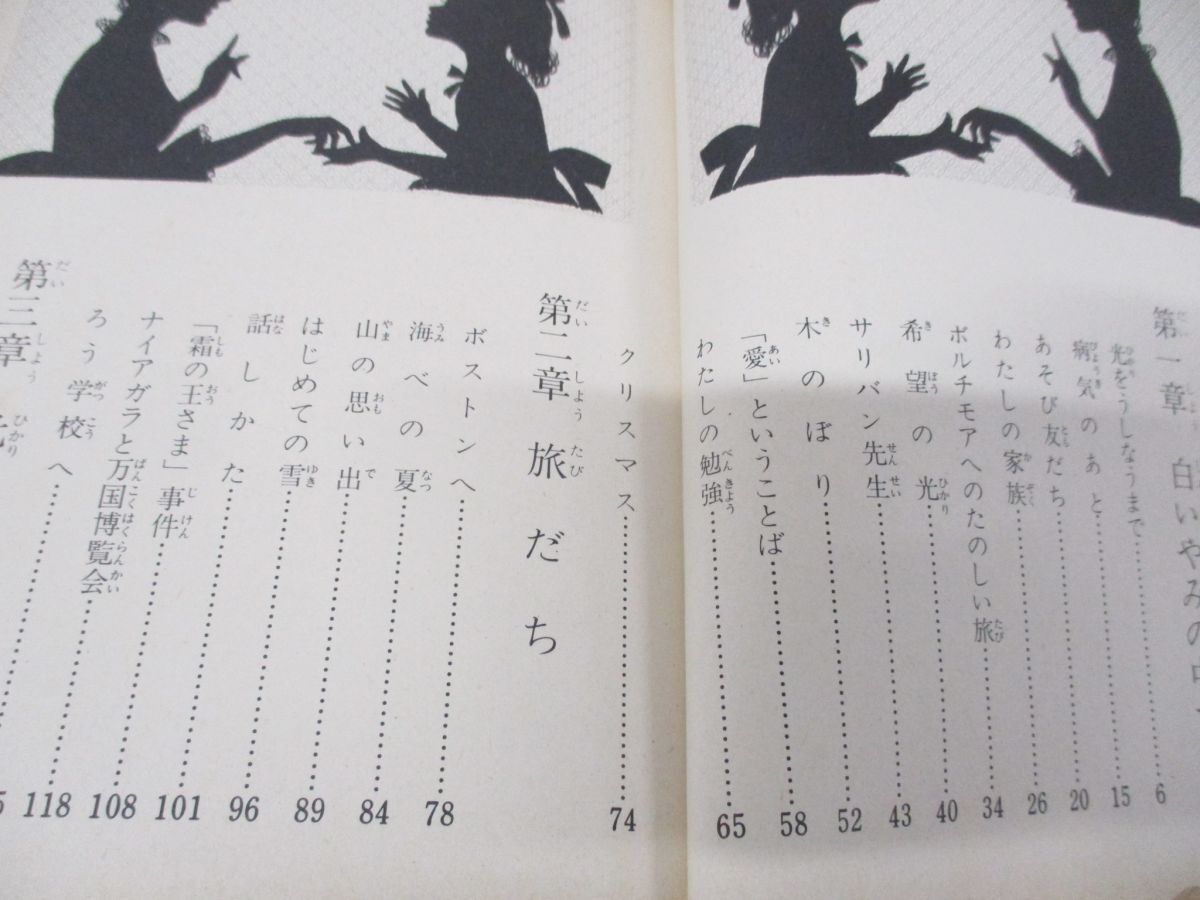 第一章 白いやみの中
光をうしなうまで 6
病気のあと 15
あそび友だち 20
わたしの家族 26
ボルチモアへのたのしい旅 34
希望の光 40
サリバン先生 43
木のぼり 52
「愛」ということば 58
わたしの勉強 65
クリスマス 74
第二章 旅だち
ボストンへ 78
海べの夏 84
山の思い出 89
はじめての雪 96
話しかた 101
「霜の王さま」事件 108
ナイアガラと万国博覧会 118
ろう学校へ
第三章